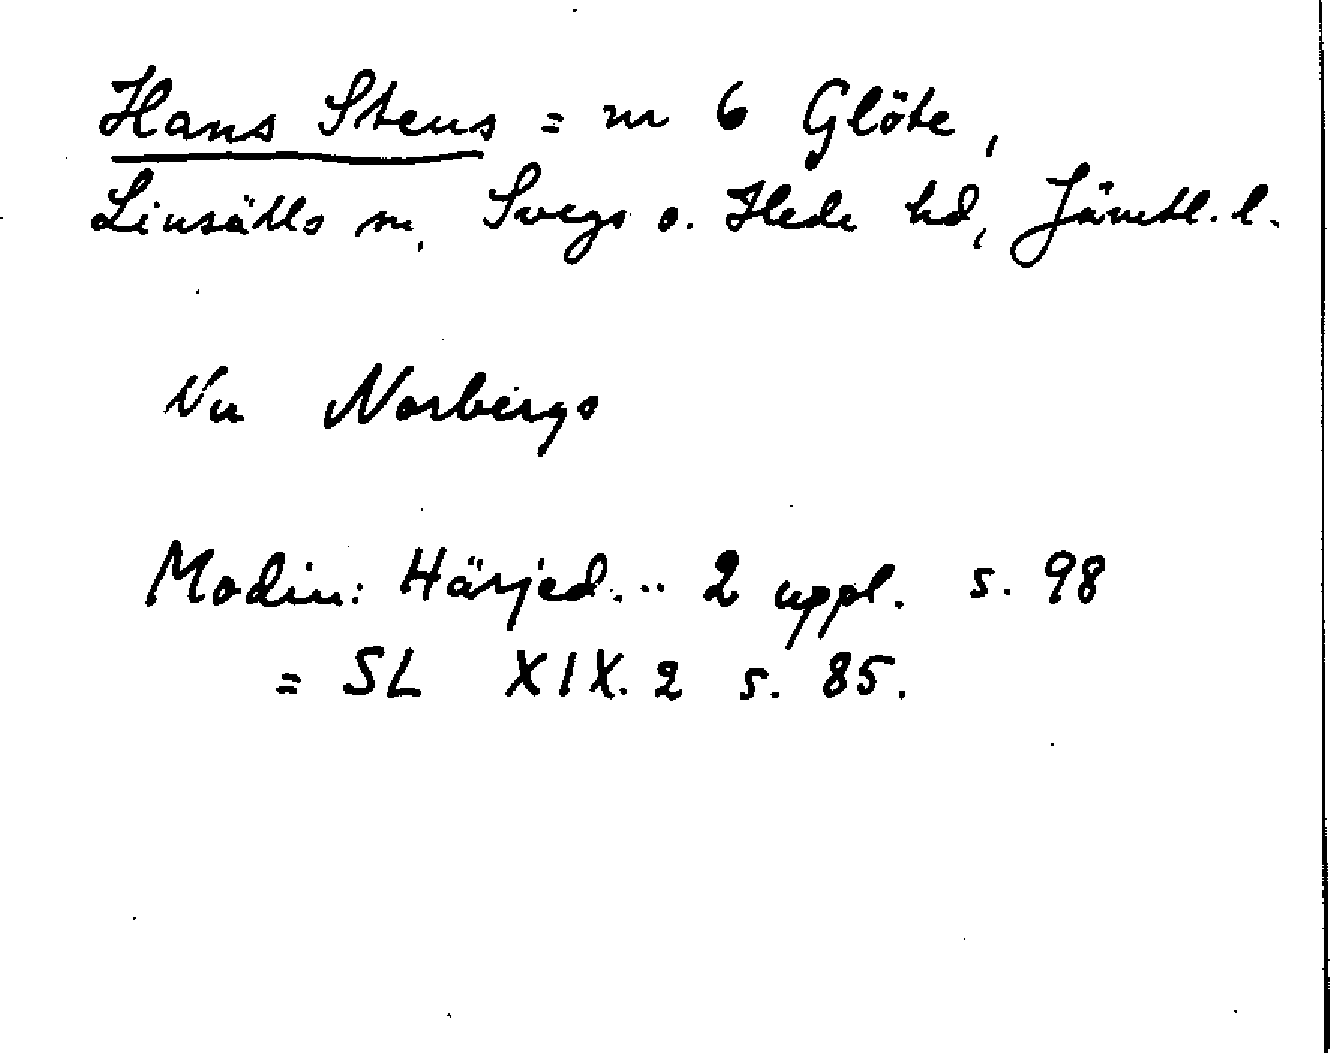 Hans Stens = nr 6 Glöte,
Linsälls sn, Svegs o. Hede hd, Jämtl. l.
Nu Norbergs
Modin: Härjed... 2 uppl. s. 98
= SL XIX. 2 s. 85.